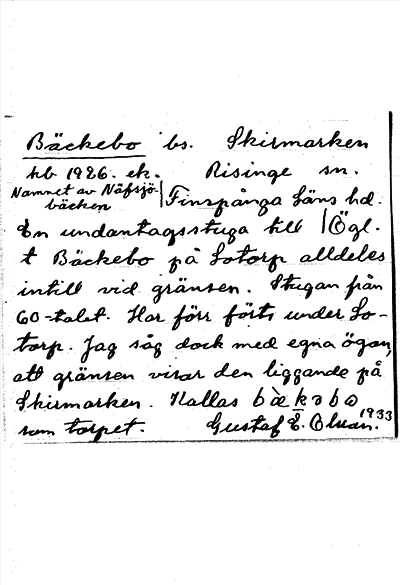 Bäckebo bs. Skirmarken
kb 1926. ek. Risinge sn.
Namnet av Näfsjö-
bäcken
Finspånga läns hd.
En undantagsstuga till Ögl.
t Bäckebo på Sotorp alldeles
intill vid gränsen. Stugan från
60-talet. Har förr förts under So-
torp. Jag såg dock med egna ögon,
att gränsen visar den liggande på
Skirmarken. Kallas bækəbo
som torpet. Gustaf E. Olsson. 1933